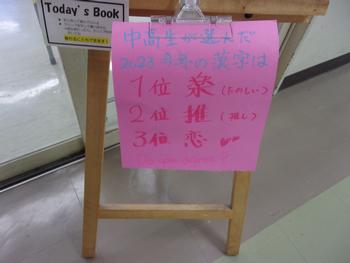 Today's Book
中高生が選んだ
2023 今年の漢字は
1位 楽(たのしい)
2位 推(推し)
3位 恋
Do you agree?